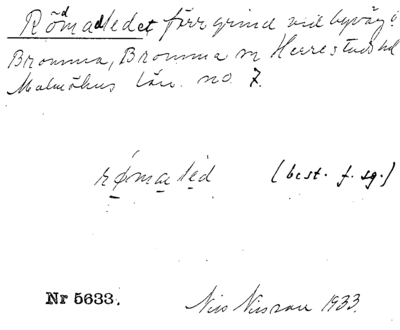 Rödmadledet förr grind vid byväg i
Bromma, Bromma sn Herrestads hd
Malmöhus län. no. 7.
rø̱ma̱le̱d (best. f. sg.)
Nr 5633. Nils Nilsson 1933.